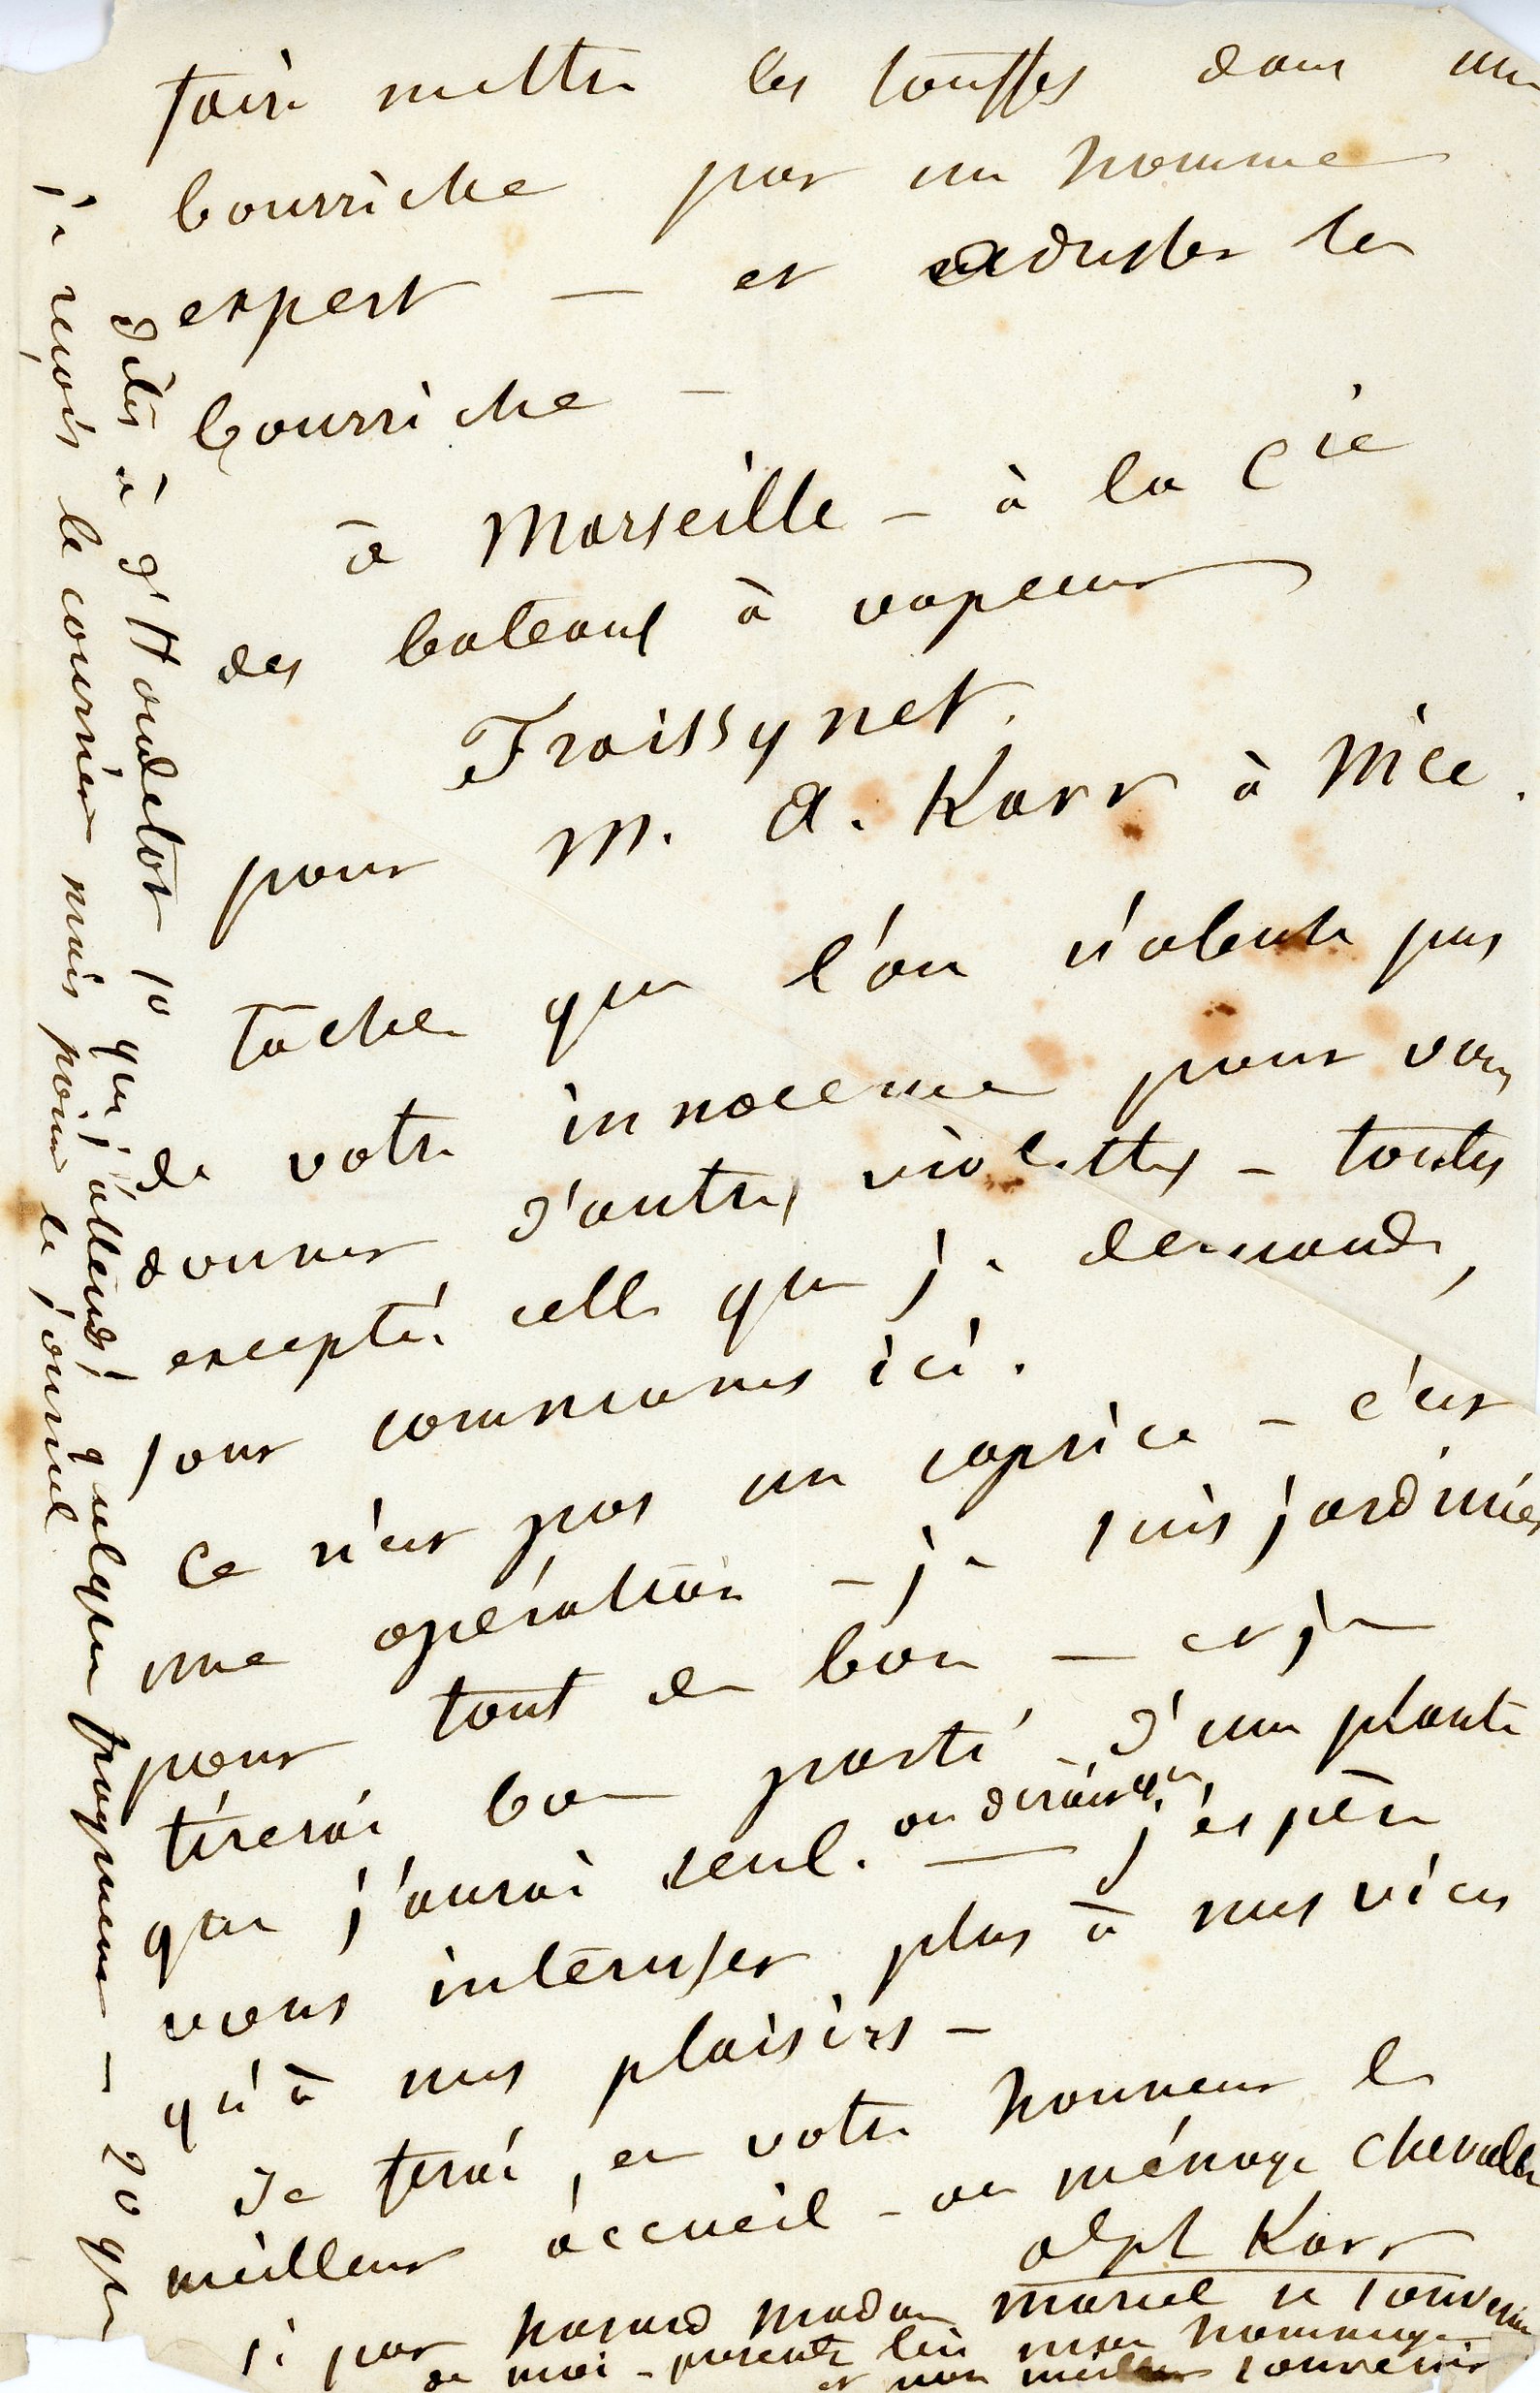 faire mettre les touffes dans une
bourriche par un homme
expert — et adresser la
bourriche —
à Marseille — à la Cie
des bateaux à vapeur
Fraissynet.
pour M. A. Karr à Nice.
tâchez que l'on n'abuse pas
de votre innocence pour vous
donner d'autres violettes — toutes
excepté celle que je demande,
sont communes ici.
Ce n'est pas un caprice — c'est
une opération — je suis jardinier
pour tout de bon — et je
tirerai bon parti d'une plante
que j'aurai seul. — j'espère
on dirait que
vous intéresser plus à mes vices
qu'à mes plaisirs —
Je ferai, en votre honneur le
meilleur accueil — au ménage Chevalier
alph Karr
si par hasard madame marcel se souvient
de moi — présentez lui mon hommage
et mon meilleur souvenir
dites à d'Houdetot 1o que j'attends quelque payement — 2o que
je reçois le courrier mais point le journal